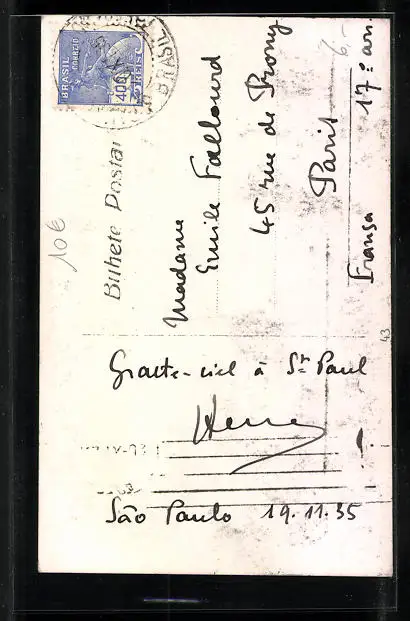 BRASIL
CORREIO
400
REIS
BRASIL
Bilhete Postal
10€
6,-
Madame
Emile Fallourd
45 rue de Prony
Paris
17e arr.
França
43
Gratte-ciel à St Paul
São Paulo 19.11.35